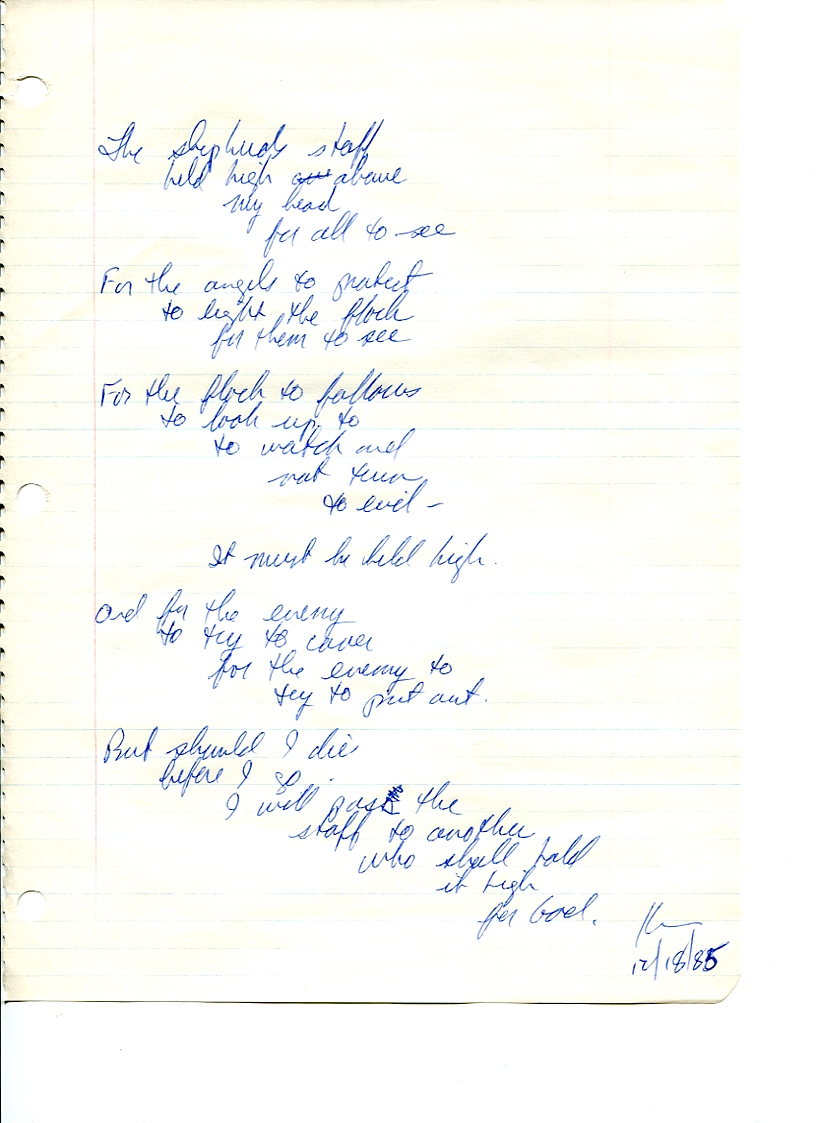 The shepherds staff
held high above
my head
for all to see
For the angels to protect
to light the flock
for them to see
For the flock to follows
to look up to
to watch and
not turn
to evil –
It must be held high.
and for the enemy
to try to cover
for the enemy to
try to put out.
But should I die
before I go
I will pass the
staff to another
who shall hold
it high
for God.
12/18/85